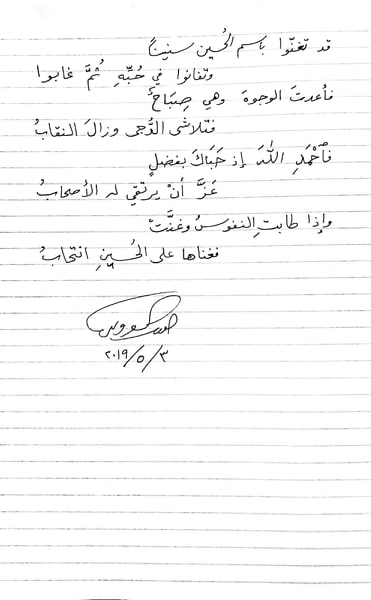 قد تغنّوا باسم الحُسين سنيناً
وتفانوا في حُبّهِ ثُمَّ غابوا
فأعدتَ الوجوهَ وهي صِبَاحٌ
فتلاشى الدُّجى وزالَ النقابُ
فاحْمَدِ اللهَ إذ حَبَاكَ بفضلٍ
عَزَّ أنْ يرتقي له الأصحابُ
وإذا طابتِ النفوسُ وغنَّتْ
فغناها على الحُسينِ انتحابُ
٢٠١٩/٥/٣